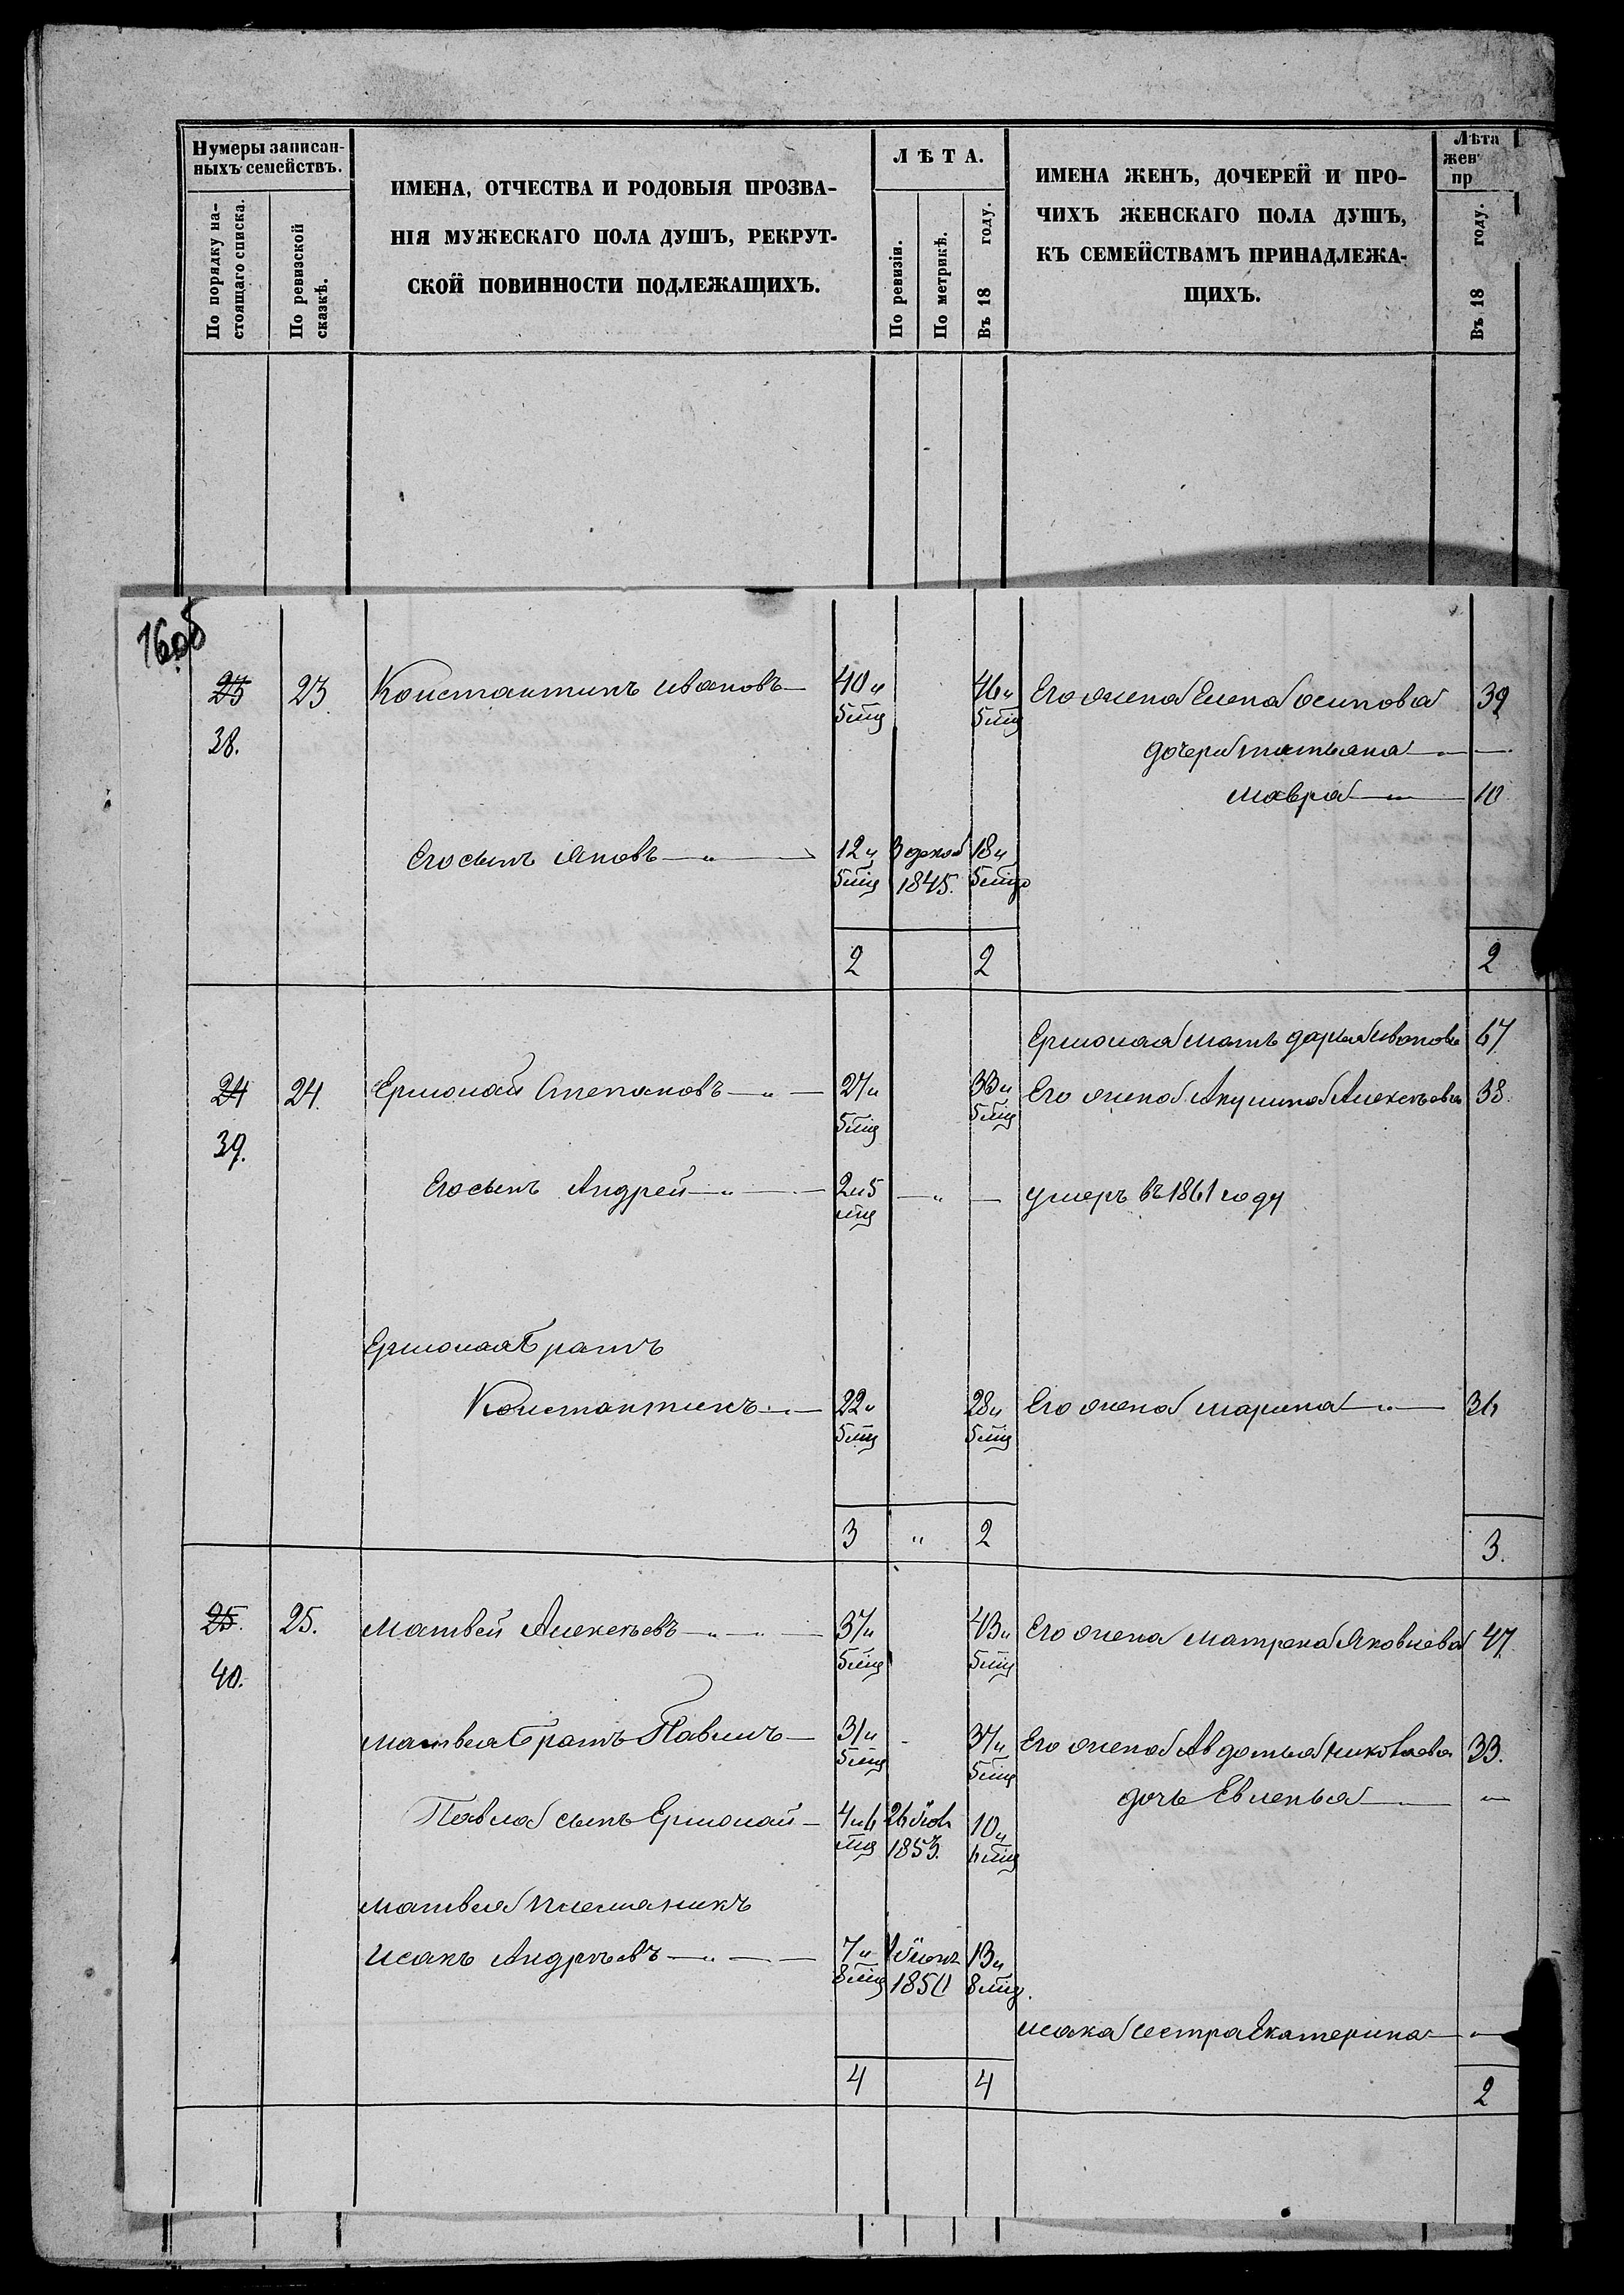 Нумеры записан-
ныхъ семействъ.
По порядку на-
стоящаго списка.
По ревизской
сказкѣ.
ИМЕНА, ОТЧЕСТВА И РОДОВЫЯ ПРОЗВА-
НІЯ МУЖЕСКАГО ПОЛА ДУШЪ, РЕКРУТ-
СКОЙ ПОВИННОСТИ ПОДЛЕЖАЩИХЪ.
ЛѢТА.
По ревизіи.
По метрикѣ.
Въ 18 году.
ИМЕНА ЖЕНЪ, ДОЧЕРЕЙ И ПРО-
ЧИХЪ ЖЕНСКАГО ПОЛА ДУШЪ,
КЪ СЕМЕЙСТВАМЪ ПРИНАДЛЕЖА-
ЩИХЪ.
Лѣта
жен
пр
Въ 18 году.
160об
23 23 Константинъ Ивановъ — 40 и 46 и Его жена Елена Осипова 39
5 мц 5 мц
38. дочери Татьяна — " — —
Мавра — " — 10
Его сынъ Яковъ — " — 12 и 3 декаб 18 и
5 мц 1845. 5 мцо
2 2 2
Ермолая мать Дарья Иванова 67
24 24. Ермолай Степановъ — " — 27 и 33 и Его жена Акулина Алексѣева 38.
5 мц 5 мц
39.
Его сынъ Андрей — " — 2 и 5 — " — умеръ въ 1861 году
мц
Ермолая братъ
Константинъ — " — 22 и 28 и Его жена Марина — " — 36
5 мц 5 мц
3 " 2 3.
25. 25. Матвей Алексѣевъ — " — " — 37 и 43 и Его жена Матрена Яковлева 47.
5 мц 5 мц
40.
Матвея братъ Павилъ — 31 и 37 и Его жена Авдотья Николаева 33.
5 мц 5 мц
дочь Евленья — —
Павла сынъ Ермолай — 4 и 6 26 10 и
мц 1853. 6 мц
Матвея племяникъ
Исакъ Андрѣевъ — " — 7 и 13 и
8 мц 1850 8 мц.
Исака сестра Екатерина — " —
4 4 2